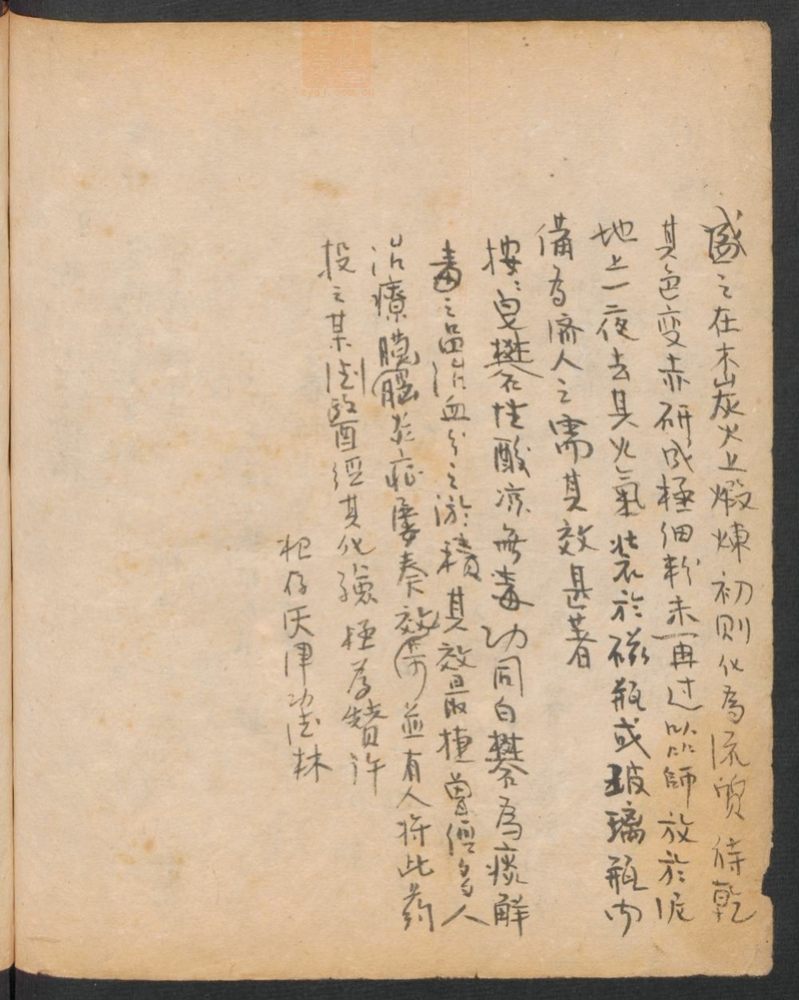 盛之在木炭火上煅煉初則化為流質待乾
其色变赤研成極細粉末再过篩放於泥
地上一夜去其火氣装於磁瓶或玻璃瓶内
備為濟人之需其效甚著
按皂礬性酸凉無毒功同白礬為痰解
毒之品治血分之淤積其效最捷曾經多人
治療臌症屢奏效並有人将此药
投之某医經其化驗極為赞许
天津功德林